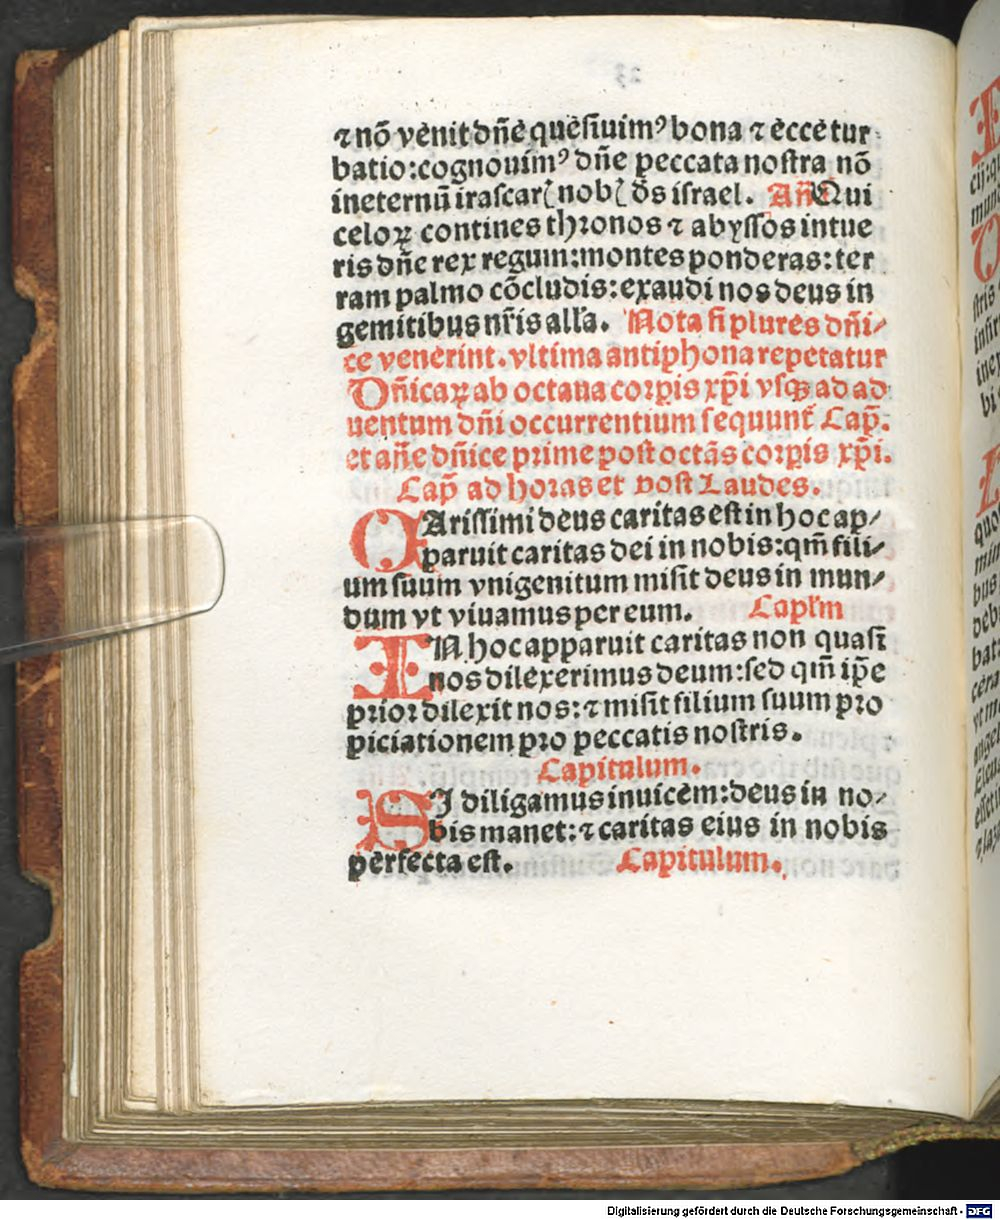 ⁊ nō venit dn̄e quesiuimꝰ bona ⁊ ecce tur
batio: cognouimꝰ dn̄e peccata nostra nō
ineternū irascar̄ nob̄ ds̄ israel. An̄ Qui
celoꝝ contines thronos ⁊ abyssos intue
ris dn̄e rex regum: montes ponderas: ter
ram palmo cōcludis: exaudi nos deus in
gemitibus nr̄is all'a. Nota si plures dn̄i/
ce venerint. vltima antiphona repetatur
Dn̄icaꝝ ab octaua corꝑis xp̄i vsqꝫ ad ad
uentum dn̄i occurrentium sequunt̄ Cap̄.
et an̄e dn̄ice prime post octās corꝑis xp̄i.
Cap̄ ad horas et post Laudes.
CArissimi deus caritas est in hoc ap/
paruit caritas dei in nobis: qm̄ fili/
um suum vnigenitum misit deus in mun/
dum vt viuamus per eum. Capl'm
IN hoc apparuit caritas non quasi
nos dilexerimus deum: sed qm̄ ip̄e
prior dilexit nos: ⁊ misit filium suum pro
piciationem pro peccatis nostris.
Capitulum.
SI diligamus inuicem: deus in no/
bis manet: ⁊ caritas eius in nobis
perfecta est. Capitulum.
Digitalisierung gefördert durch die Deutsche Forschungsgemeinschaft - DFG